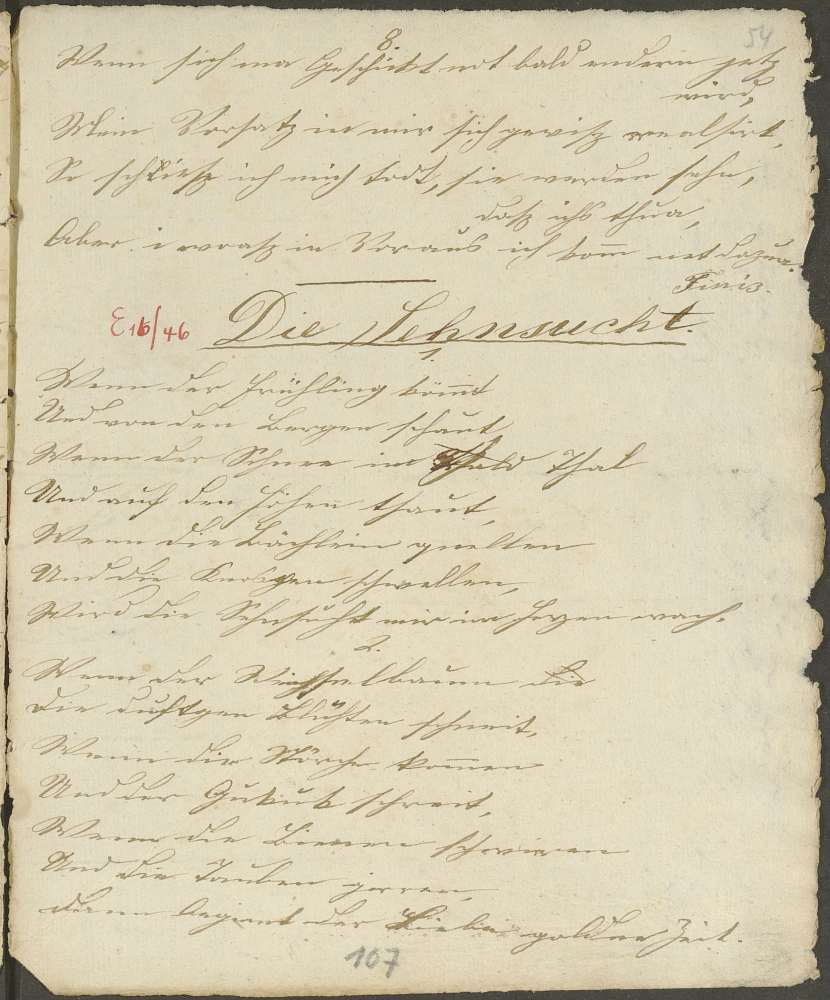 54
8.
Wenn sich ma Geschickt nit bald andern jetz
wird,
Mein Vorsatz in mir sich gewiß realsirt,
So schiess ich mich todt, sie werden sehn,
daß ichs thua,
Aber i woaß in Voraus ich kom̄ net dazua.
Finis.
E 16/46
Die Sehnsucht.
1.
Wenn der Frühling köm̄t
Und von den Bergen schaut
Wenn der Schnee im Thal
Und auf den Höhen thaut,
Wenn die Bächlein quellen
Und die Knospen schwellen,
Wird die Sehnsucht mir im Herzen wach.
2.
Wenn der Weichselbaum die
Die duftgen Blüthen schneit,
Wenn die Störche kom̄en
Und der Gukuk schreit,
Wenn die Bienen schwirren
Und die Tauben girren,
Dann beginnt der Liebe goldne Zeit.
107